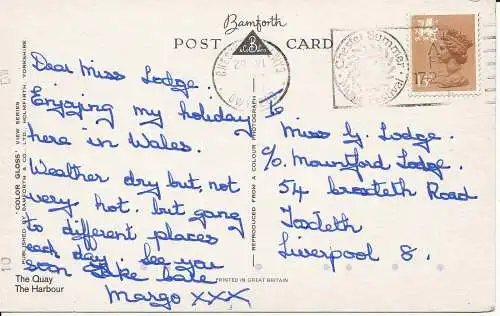 Bamforth
POST CARD
Dear Miss Lodge.
Enjoying my holiday
here in Wales.
Weather dry but, not
very hot. but gang
to different places
each day. See you
soon Take care
Margo XXX
To
Miss G. Lodge.
C/o Mountford Lodge.
54 Croxteth Road
Toxteth
Liverpool 8.
17½P
'COLOR GLOSS' VIEW SERIES
PUBLISHED BY BAMFORTH & CO. LTD. HOLMFIRTH, YORKSHIRE
REPRODUCED FROM A COLOUR PHOTOGRAPH
The Quay
The Harbour
PRINTED IN GREAT BRITAIN